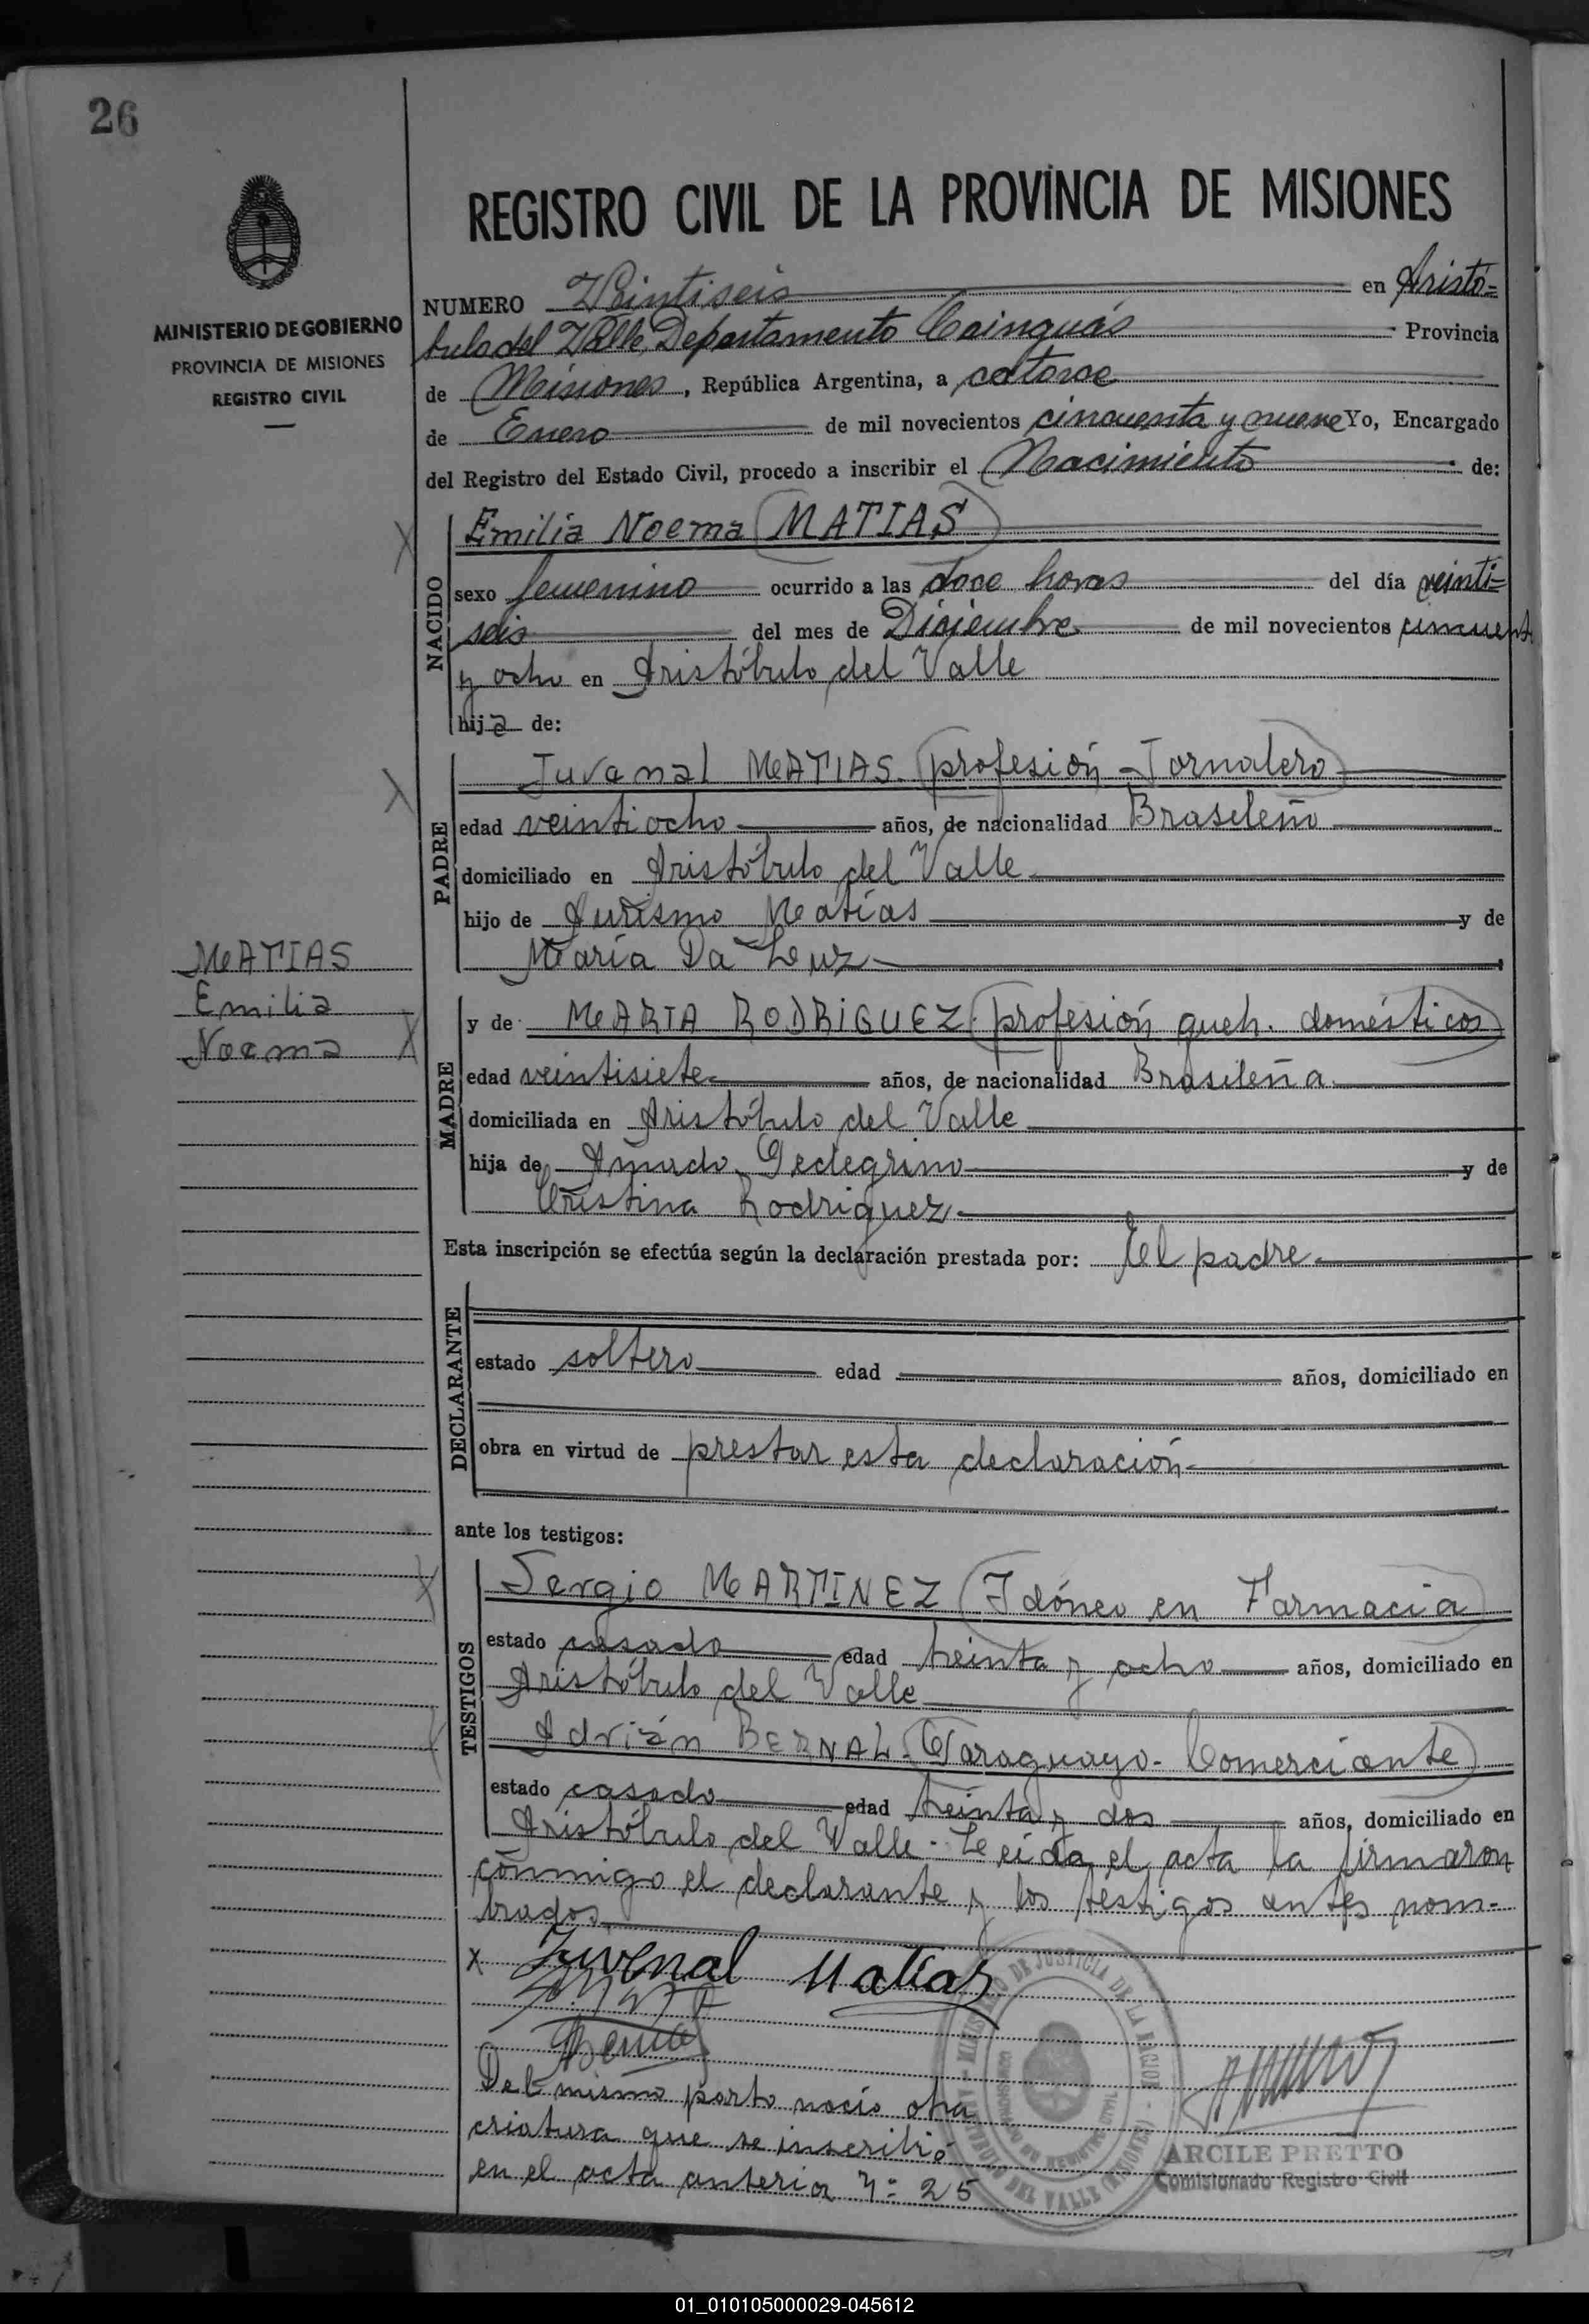 26
REGISTRO CIVIL DE LA PROVINCIA DE MISIONES
MINISTERIO DE GOBIERNO
PROVINCIA DE MISIONES
REGISTRO CIVIL
NUMERO Veintiseis en Aristó=
bulo del Valle, Departamento Cainguás Provincia
de Misiones, República Argentina, a catorce
de Enero de mil novecientos cincuenta y nueve Yo, Encargado
del Registro del Estado Civil, procedo a inscribir el Nacimiento de:
NACIDO
Emilia Noema MATIAS
sexo femenino ocurrido a las doce horas del día veinti=
seis del mes de Diciembre de mil novecientos cincuenta
y ocho en Aristóbulo del Valle
hija de:
PADRE
Juvenal MATIAS. profesión - Jornalero
edad veintiocho años, de nacionalidad Brasileño
domiciliado en Aristóbulo del Valle
hijo de Matías y de
María Da Luz
MATIAS
Emilia
Noema
MADRE
y de MARIA RODRIGUEZ. profesión queh. domésticos
edad veintisiete años, de nacionalidad Brasileña
domiciliada en Aristóbulo del Valle
hija de Amado y de
Cristina Rodriguez
Esta inscripción se efectúa según la declaración prestada por: El padre
DECLARANTE
estado soltero edad años, domiciliado en
obra en virtud de prestar esta declaración
ante los testigos:
TESTIGOS
Sergio MARTINEZ Idóneo en Farmacia
estado casado edad treinta y ocho años, domiciliado en
Aristóbulo del Valle
Adrián BERNAL. Paraguayo - Comerciante
estado casado edad treinta y dos años, domiciliado en
Aristóbulo del Valle - Leída el acta la firmaron
conmigo el declarante y los testigos antes nom-
brados
x Juvenal Matias
Bernal
Del mismo parto nacio otra
criatura que se inscribió
en el acta anterior Nº 25
MINISTERIO DE JUSTICIA DE LA NACION
ARISTOBULO DEL VALLE (MISIONES)
ARCILE PRETTO
Comisionado Registro Civil
01_010105000029-045612